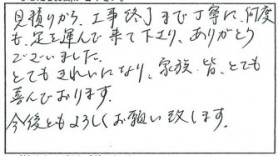 見積りから、工事終了まで丁寧に、何度
も、足を運んで来て下さり、ありがとう
ございました。
とてもきれいになり、家族、皆、とても
喜んでおります。
今後ともよろしくお願い致します。